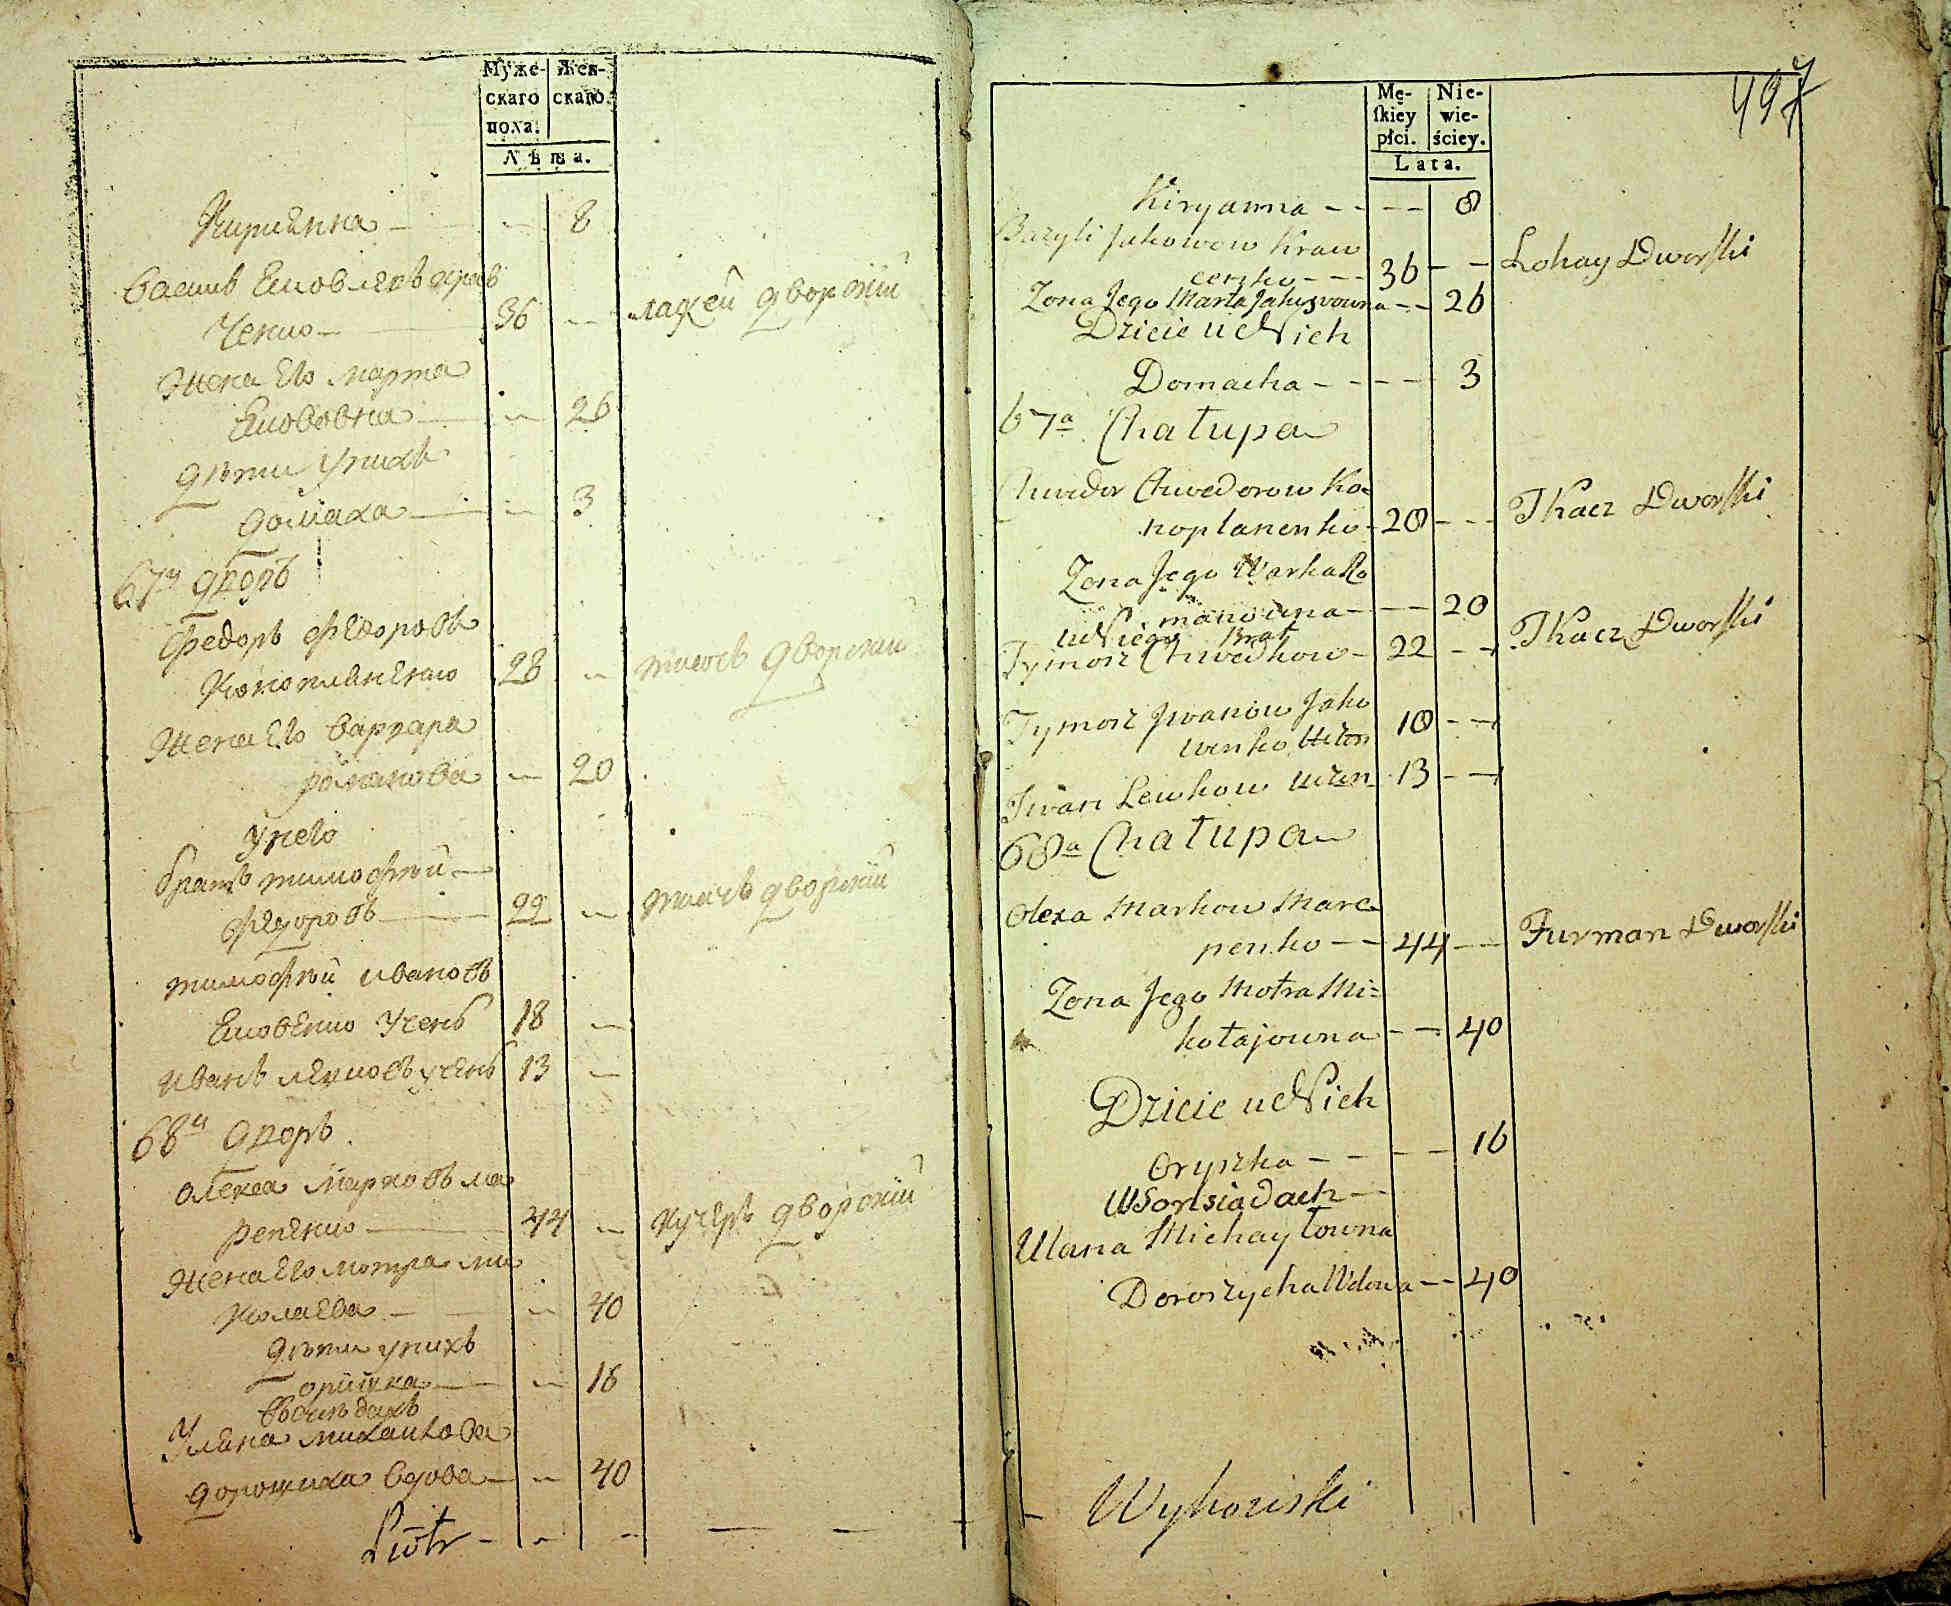 Муже-
скаго
пола.
Жен-
скаго.
Лѣта.
Кириенна — — 8
Василь Яковлевъ Крав
ченко — 36 — лакей дворский
Жена Его Марта
Якововна — — 26
Дѣти у нихъ
Домаха — — 3
67й дворъ
Федоръ Федоровъ
Конопляненко 28 — ткачъ дворский
Жена Его Варвара
романова — 20
у него
братъ тимофѣй —
Федоровъ — 22 — ткачъ дворский
тимофѣй ивановъ
Яковенко Ученъ 18 —
иванъ левковъ ученъ 13 —
68й дворъ
Олекса Марковъ ма
репенко — 44 — кучеръ дворский
Жена Его мотра ми
колаева — — 40
Дѣти у нихъ
оришка — — 16
Въ сусѣдахъ
Уляна михайлова
дорошиха вдова — — 40
Piotr - - - - - -
497
Mę-
skiey
płci.
Nie-
wie-
ściey.
Lata.
Kiryanna - - - - 8
Bazyli Jakowow Kraw
cenko - - - 36 - - Lokay Dworski
Zona Jego Marta Jakowowna - - 26
Dzieie u Nich
Domacha - - - - 3
67a Chałupa
Chwedor Chwedorow Ko=
noplanenko - 28 - - - Tkacz Dworski
Zona Jego Warka Ro
manowna - - - 20
u Niego Brat
Tymosz Chwedkow - 22 - - Tkacz Dworski
Tymosz Jwanow Jako
wenko Uczen 18 - -
Jwan Lewkow uczen 13 - -
68a Chałupa
Olexa Markow Mare
penko - - 44 - - Furman Dworski
Zona Jego Motra Mi=
kołajowna - - 40
Dzieie u Nich
Oryszka - - - - 16
W Sonsiadach -
Ulana Michayłowna
Doroszycha Wdowa - - 40
- Wykowski